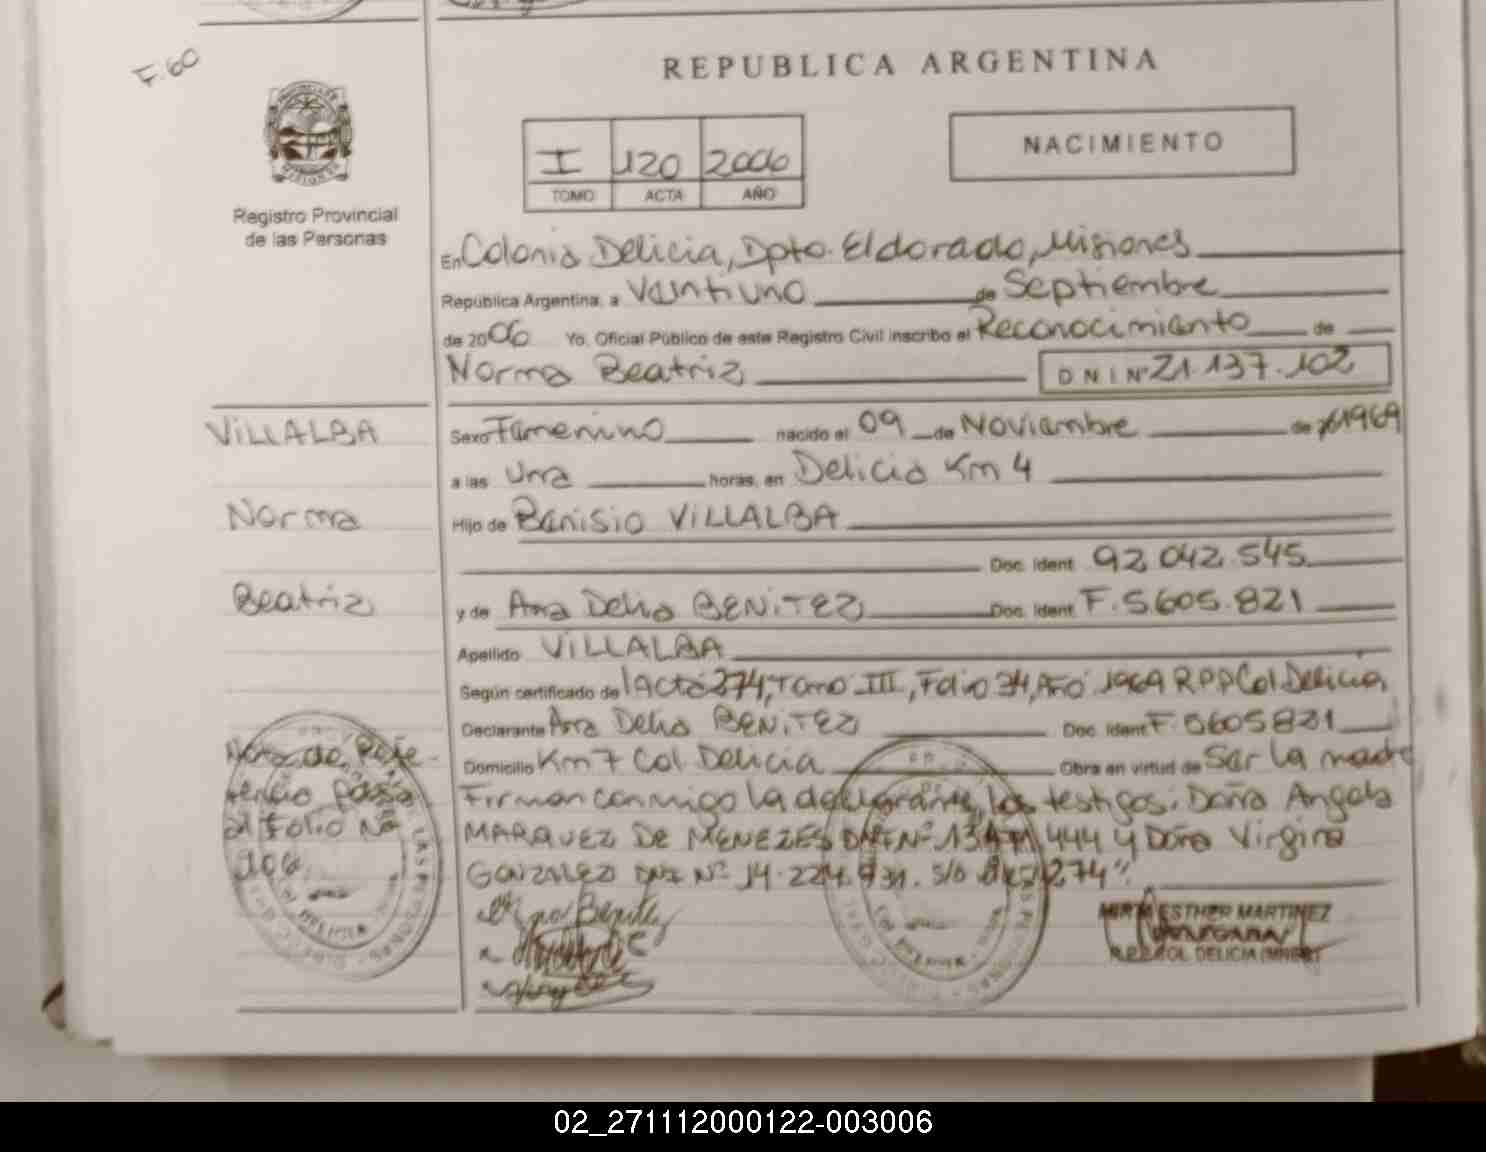 F. 60
REPUBLICA ARGENTINA
NACIMIENTO
I 120 2006
TOMO ACTA AÑO
Registro Provincial
de las Personas
En Colonia Delicia, Dpto. Eldorado, Misiones
República Argentina, a Veintiuno de Septiembre
de 2006 Yo, Oficial Público de este Registro Civil inscribo el Reconocimiento de
Norma Beatriz DNI Nº 21.137.102
VILLALBA
Norma
Beatriz
Sexo Femenino nacido el 09 de Noviembre de 1969
a las Una horas, en Delicia Km 4
Hijo de Benisio VILLALBA
Doc. Ident. 92.042.545
y de Ana Delia BENITEZ Doc. Ident. F.5.605.821
Apellido VILLALBA
Según certificado de Acta 274, Tomo III, Folio 34, Año 1969 RPP Col Delicia
Declarante Ana Delia BENITEZ Doc. Ident F.5605821
Domicilio Km 7 Col Delicia Obra en virtud de Ser la madre
Firman conmigo la declarante, los testigos: Doña Angela
MARQUEZ DE MENEZES DNI Nº 444 y Doña Virginia
GONZALEZ DNI Nº 14.224.931. S/O 274".
Nota de Refe-
rencia pasa
al folio Nº
MIRTA ESTHER MARTINEZ
ENCARGADA
R.P.P. COL DELICIA (MNES)
02_271112000122-003006